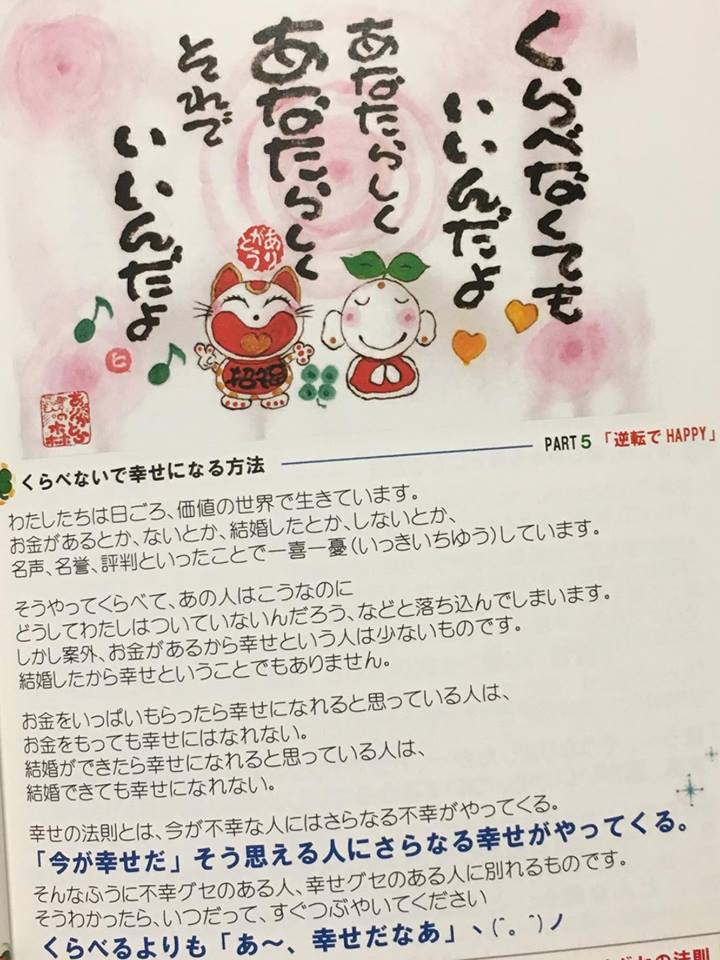 くらべなくても
いいんだよ
あなたらしく
あなたらしく
それで
いいんだよ
ありがとう
招福
PART5 「逆転でHAPPY」
くらべないで幸せになる方法
わたしたちは日ごろ、価値の世界で生きています。
お金があるとか、ないとか、結婚したとか、しないとか、
名声、名誉、評判といったことで一喜一憂(いっきいちゆう)しています。
そうやってくらべて、あの人はこうなのに
どうしてわたしはついていないんだろう、などと落ち込んでしまいます。
しかし案外、お金があるから幸せという人は少ないものです。
結婚したから幸せということでもありません。
お金をいっぱいもらったら幸せになれると思っている人は、
お金をもっても幸せにはなれない。
結婚ができたら幸せになれると思っている人は、
結婚できても幸せになれない。
幸せの法則とは、今が不幸な人にはさらなる不幸がやってくる。
「今が幸せだ」そう思える人にさらなる幸せがやってくる。
そんなふうに不幸グセのある人、幸せグセのある人に別れるものです。
そうわかったら、いつだって、すぐつぶやいてください
くらべるよりも「あ～、幸せだなあ」ヽ(^。^)ノ
の法則